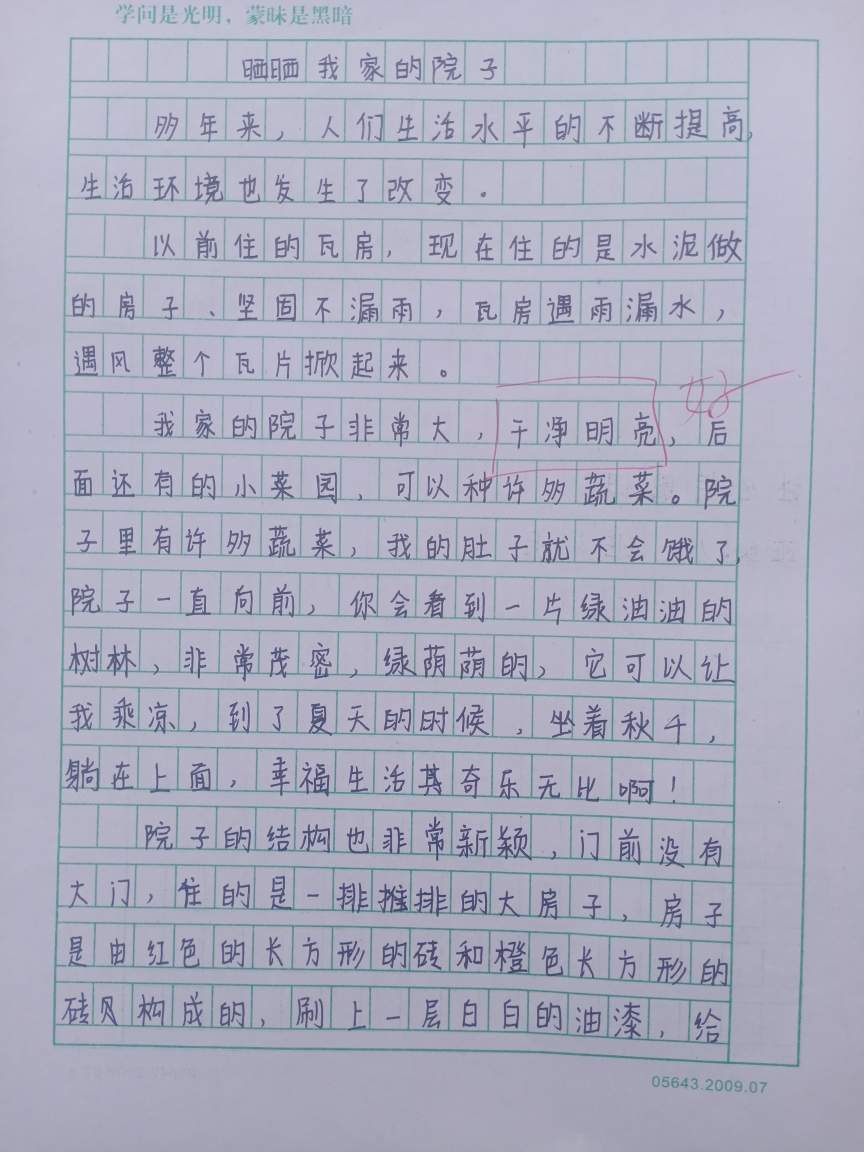 学问是光明，蒙昧是黑暗
晒晒我家的院子
多年来，人们生活水平的不断提高，
生活环境也发生了改变。
以前住的瓦房，现在住的是水泥做
的房子、坚固不漏雨，瓦房遇雨漏水，
遇风整个瓦片掀起来。
我家的院子非常大，干净明亮，后
好
面还有的小菜园，可以种许多蔬菜。院
子里有许多蔬菜，我的肚子就不会饿了，
院子一直向前，你会看到一片绿油油的
树林，非常茂密，绿荫荫的，它可以让
我乘凉，到了夏天的时候，坐着秋千，
躺在上面，幸福生活其奇乐无比啊！
院子的结构也非常新颖，门前没有
大门，住的是一排排的大房子，房子
是由红色的长方形的砖和橙色长方形的
砖构成的，刷上一层白白的油漆，给
05643.2009.07